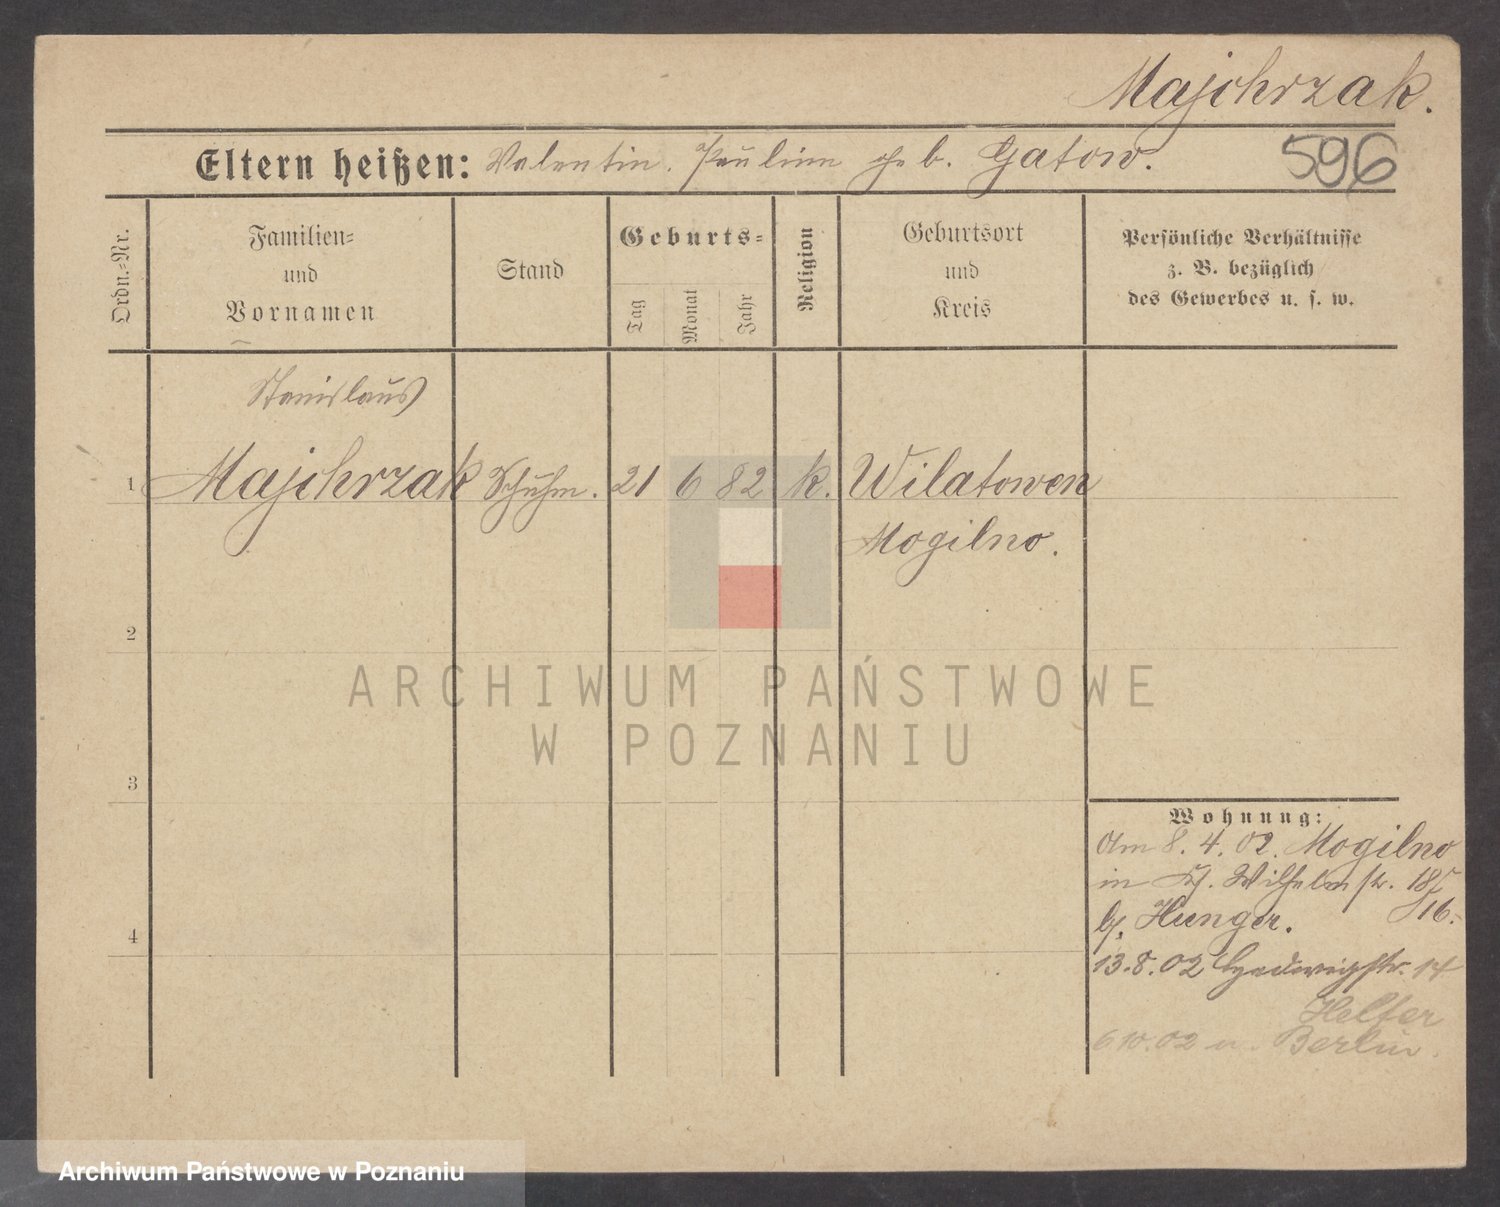 Majchrzak.
Eltern heißen: Valentin. Pauline geb. Gatow.
596
Ordn.-Nr.
Familien-
und
Vornamen
Stand
Geburts-
Tag
Monat
Jahr
Religion
Geburtsort
und
Kreis
Persönliche Verhältnisse
z. B. bezüglich
des Gewerbes u. s. w.
Stanislaus
1 Majchrzak Schuhm. 21 6 82 k. Wilatowen
Mogilno.
2
ARCHIWUM PAŃSTWOWE
W POZNANIU
3
Wohnung:
Am 8. 4. 02. Mogilno
in Wilhelmstr. 18
b. Hunger. 16.
4
13.8.02 Hedwigstr. 14
Helfer
6 10.02 n. Berlin.
Archiwum Państwowe w Poznaniu